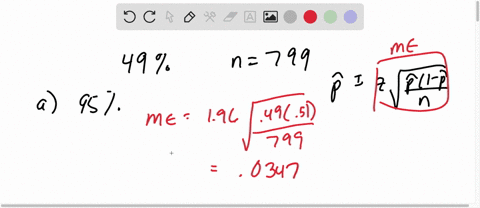 49%. n = 799
a) 95%.
ME = 1.96 √(.49(.51)/799)
= .0347
ME
p̂ ± z √(p̂(1-p̂)/n)